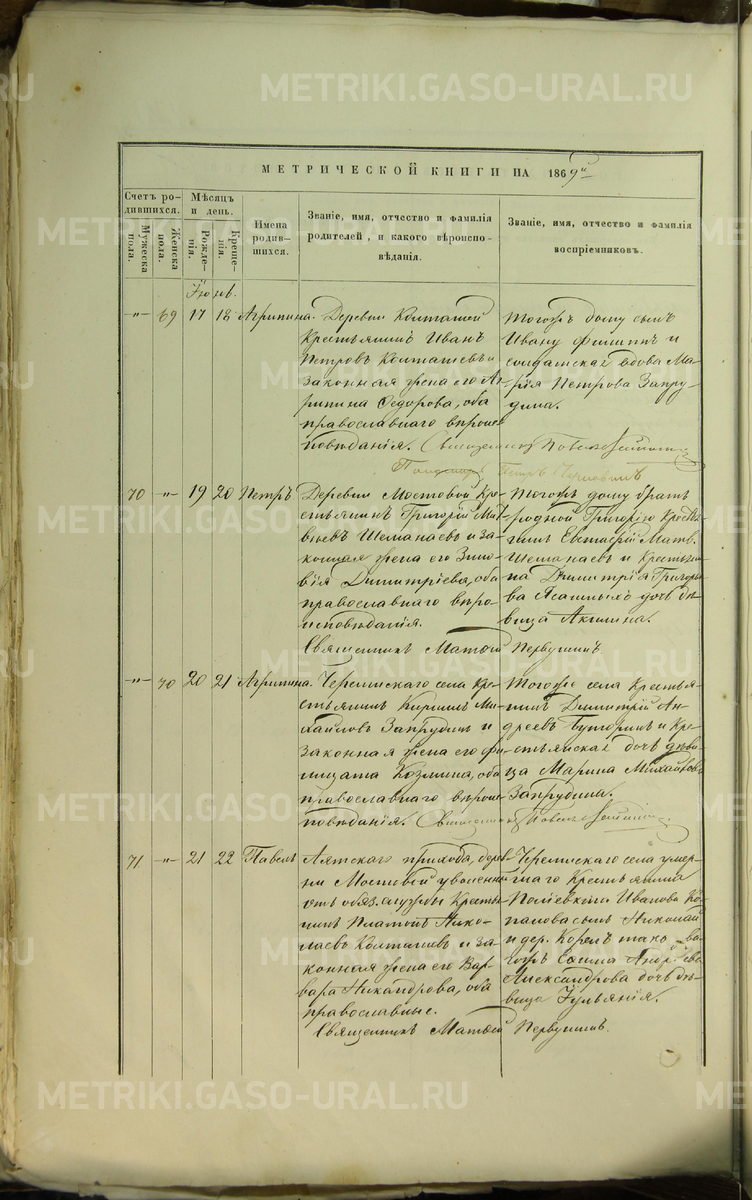 МЕТРИЧЕСКОЙ КНИГИ НА 1869й
Счетъ ро-
дившихся.
Мужеска
пола.
Женска
пола.
Мѣсяцъ
и день.
Рожде-
нія.
Креще-
нія.
Имена
родив-
шихся.
Званіе, имя, отчество и фамилія
родителей, и какого вѣроиспо-
вѣданія.
Званіе, имя, отчество и фамилія
воспріемниковъ.
Іюнь.
-"- 69 17 18 Агрипина.
Деревни Колташей
Крестьянинъ Иванъ
Петровъ Колташевъ и
законная жена его Аг
рипина Федорова, оба
православнаго вѣроис
повѣданія. Священникъ
Тогожъ дому сынъ
Ивану Филиппъ и
солдатская вдова Ма-
рія Петрова Запру-
дина.
70 -"- 19 20 Петръ
Деревни Мостовой Кре
стьянинъ Григорій Мат
вѣевъ Шеманаевъ и за
конная жена его Зино
вія Димитріева, оба
православнаго вѣро
исповѣданія.
Священникъ Матѳей Первушинъ.
Тогожъ дому братъ
родной Григорію Кресть
нинъ Евстафій Матв.
Шеманаевъ и Крестьяни
на Димитрія Григорь
ва Ясашныхъ дочь дѣ
вица Акилина.
-"- 70 20 21 Агрипина.
Черемисскаго села Кре
стьянинъ Кирилъ Ми
хайловъ Запрудинъ и
законная жена его Фи
лицата Козмина, оба
православнаго вѣроис
повѣданія. Священникъ
Тогоже села Крестья
нинъ Димитрій Ан
дреевъ Бунторинъ и Кре
стьянская дочь дѣви
ца Марина Михайлова
Запрудина.
71 -"- 21 22 Павелъ
Аятскаго прихода, дерев
ни Мостовой уволенный
отъ обяз. службы Кресть
нинъ Платонъ Нико-
лаевъ Колташевъ и за
конная жена его Вар
вара Никандрова, оба
православные.
Священникъ Матѳей Первушинъ.
Черемисскаго села умер-
шаго Крестьянина
Поліевкта Иванова Ко
палова сынъ Николай
и дер.
Александрова дочь дѣ-
вица Іульянія.
METRIKI.GASO-URAL.RU